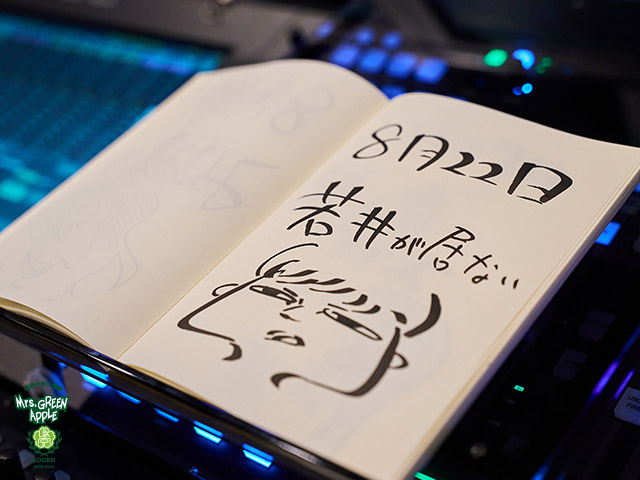 8月22日
若井が居ない
Mrs. GREEN
APPLE
LOCKS!